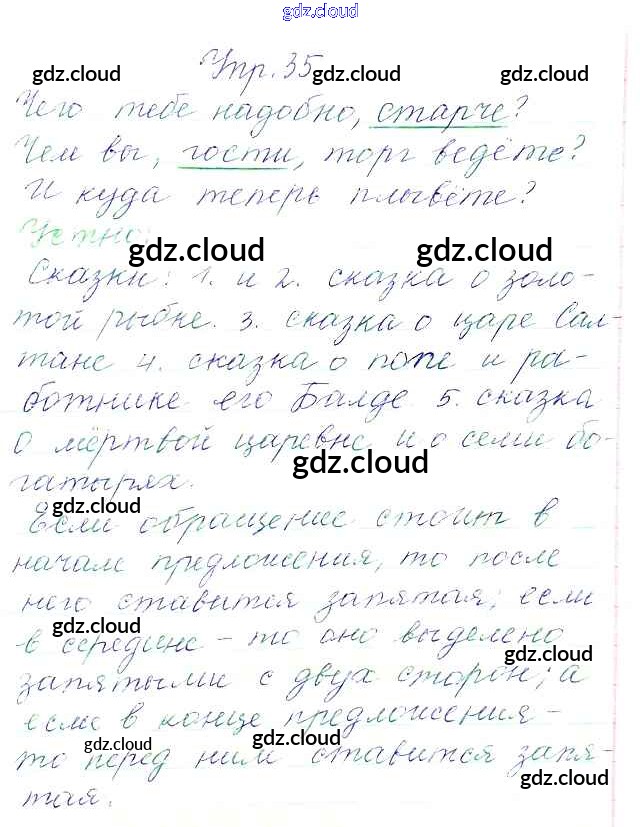 gdz.cloud
Упр. 35
gdz.cloud gdz.cloud
Чего тебе надобно, старче?
Чем вы, гости, торг ведёте?
И куда теперь плывёте?
Устно:
gdz.cloud gdz.cloud
Сказки: 1. и 2. сказка о золо-
той рыбке. 3. сказка о царе Сал-
тане 4. сказка о попе и ра-
ботнике его Балде 5. сказка
о мёртвой царевне и о семи бо-
gdz.cloud
гатырях.
gdz.cloud
Если обращение стоит в
начале предложения, то после
него ставится запятая; если
gdz.cloud
в середине – то оно выделено
gdz.cloud
запятыми с двух сторон; а
если в конце предложения –
gdz.cloud gdz.cloud
то перед ним ставится запя-
gdz.cloud
тая.